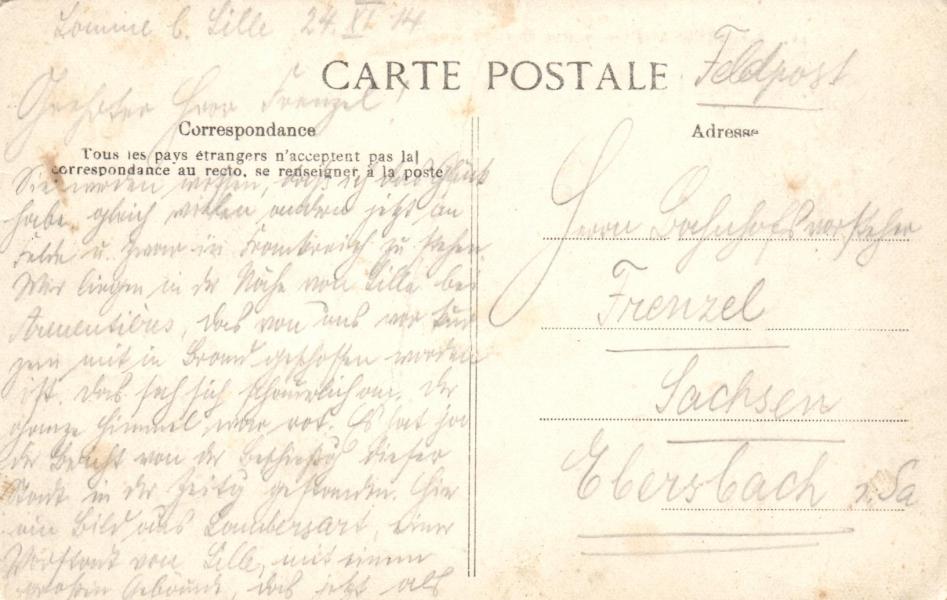 Lomme b. Lille 24. XI 14
CARTE POSTALE
Feldpost
Geehrter Herr Frenzel!
Correspondance
Tous les pays étrangers n'acceptent pas la
correspondance au recto, se renseigner à la poste
Sie werden wissen, daß ich das Glück
habe, gleich vielen andren jetzt im
Felde u. zwar in Frankreich zu stehen.
Wir liegen in der Nähe von Lille bei
Armentières, das von uns vor kur
zem mit in Brand geschossen worden
ist. Das sah sich schauerlich an. Der
ganze Himmel war rot. Es hat ja
der Bericht von der Beschießg dieser
Stadt in der Zeitg gestanden. Hier
ein Bild aus Lambersart, einer
Vorstadt von Lille, mit einem
großen Gebäude, das jetzt als
Adresse
Herrn Bahnhofsvorsteher
Frenzel
Sachsen
Ebersbach i. Sa